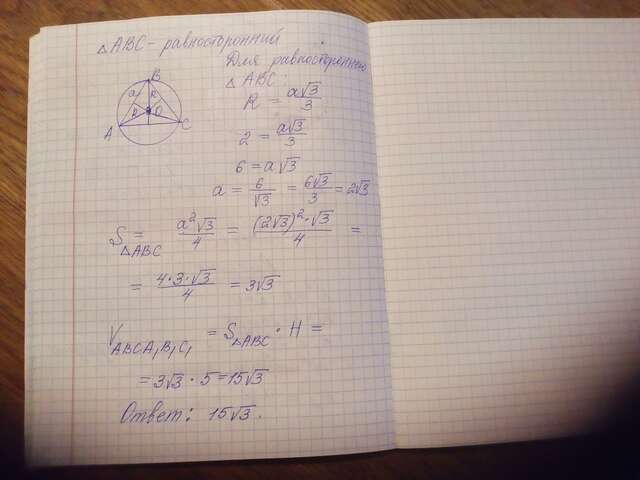 △ABC – равносторонний
Для равностороннего
△ABC:
B
a
R
R
O
A
C
R = a√3/3
2 = a√3/3
6 = a√3
a = 6/√3 = 6√3/3 = 2√3
S△ABC = a²√3/4 = (2√3)²·√3/4 =
= 4·3·√3/4 = 3√3
VABCA₁B₁C₁ = S△ABC · H =
= 3√3 · 5 = 15√3
Ответ: 15√3.